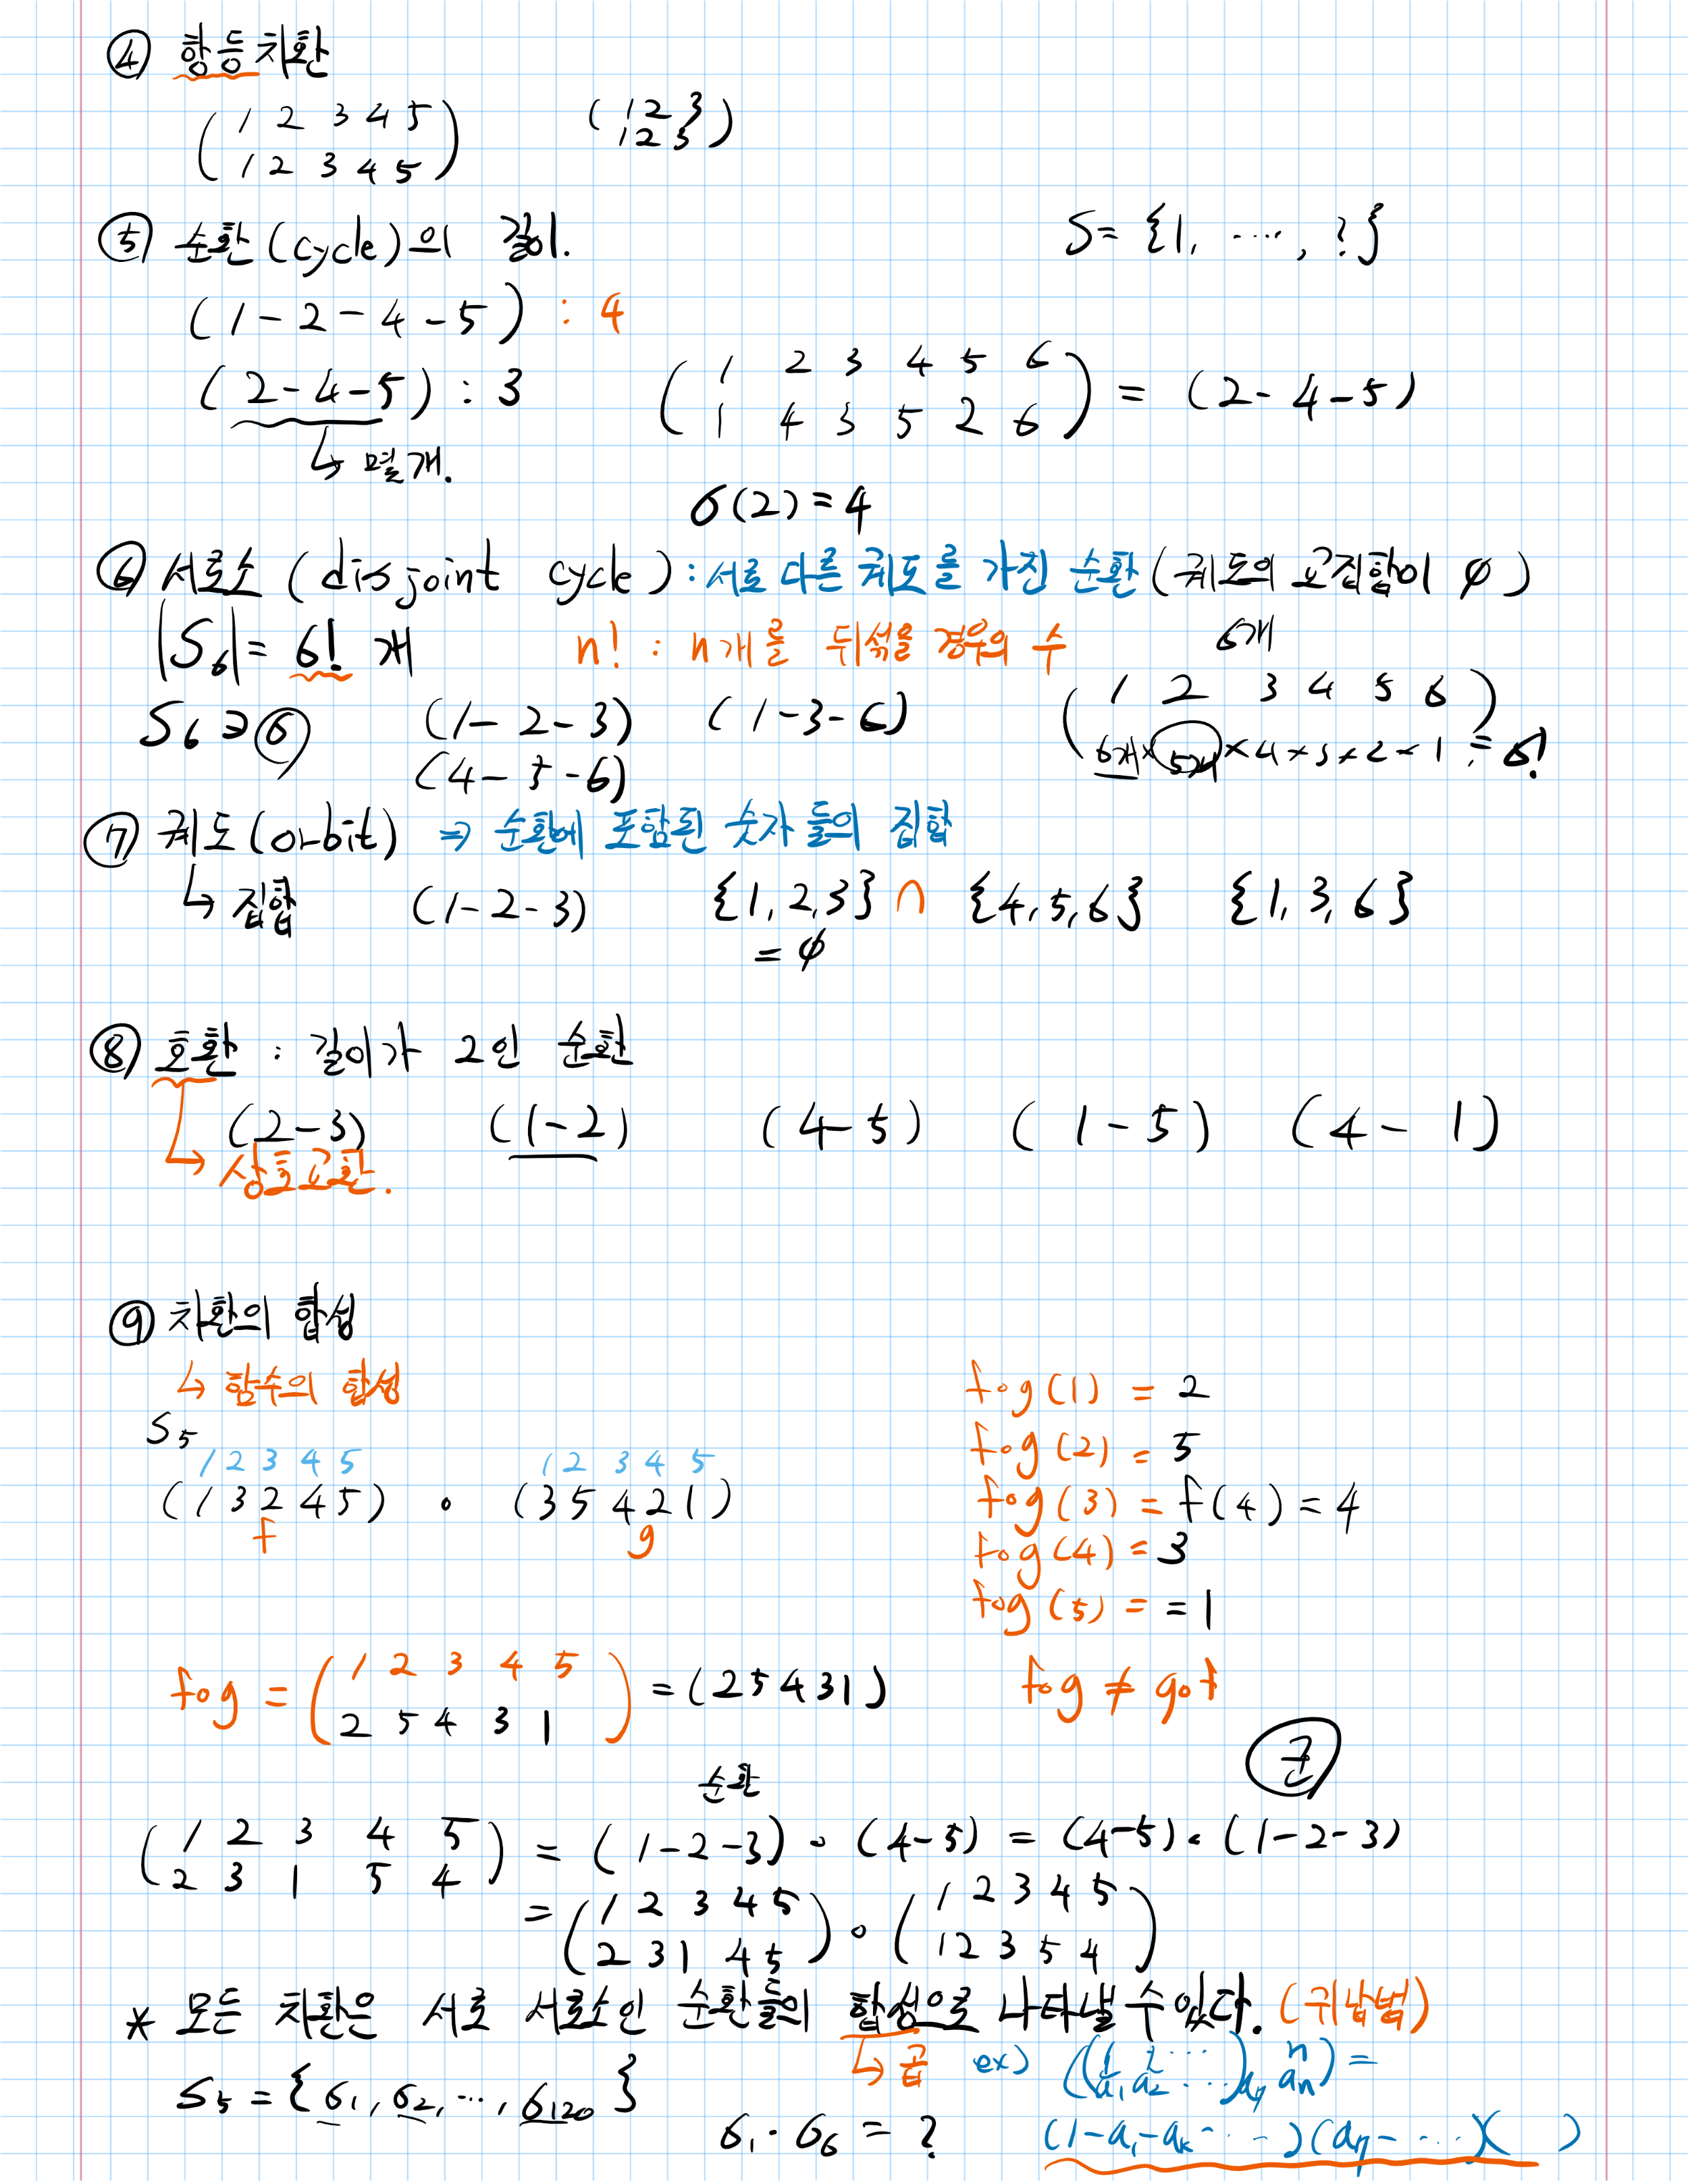 ④ 항등치환
( 1 2 3 4 5 ) ( 1 2 3 )
( 1 2 3 4 5 ) ( 1 2 3 )
⑤ 순환(cycle)의 길이. S = {1, ..., ?}
(1-2-4-5) : 4
(2-4-5) : 3 ( 1 2 3 4 5 6 ) = (2-4-5)
( 1 4 3 5 2 6 )
↳ 몇개.
σ(2) = 4
⑥ 서로소 (disjoint cycle) : 서로 다른 궤도를 가진 순환 (궤도의 교집합이 ∅)
|S₆| = 6! 개 n! : n개를 뒤섞을 경우의 수 6개
S₆ ∋ ⑥ (1-2-3) (1-3-6) ( 1 2 3 4 5 6 )
(4-5-6) ( 6개×5개×4×3×2×1 = 6!
⑦ 궤도(orbit) ⇒ 순환에 포함된 숫자들의 집합
↳ 집합 (1-2-3) {1,2,3} ∩ {4,5,6} {1,3,6}
= ∅
⑧ 호환 : 길이가 2인 순환
(2-3) (1-2) (4-5) (1-5) (4-1)
↳ 상호교환.
⑨ 치환의 합성
↳ 함수의 합성 fog(1) = 2
S₅ fog(2) = 5
1 2 3 4 5 1 2 3 4 5
(1 3 2 4 5) ∘ (3 5 4 2 1) fog(3) = f(4) = 4
f g fog(4) = 3
fog(5) = = 1
fog = ( 1 2 3 4 5 ) = (2 5 4 3 1) fog ≠ gof
( 2 5 4 3 1 )
순환 군
( 1 2 3 4 5 ) = (1-2-3) ∘ (4-5) = (4-5) ∘ (1-2-3)
( 2 3 1 5 4 )
= ( 1 2 3 4 5 ) ∘ ( 1 2 3 4 5 )
( 2 3 1 4 5 ) ( 1 2 3 5 4 )
* 모든 치환은 서로 서로소인 순환들의 합성으로 나타낼 수 있다. (귀납법)
↳ 곱 ex) ( 1 2 ... n ) =
( a₁ a₂ ... aₙ )
S₅ = {σ₁, σ₂, ..., σ₁₂₀}
σ₁ · σ₆ = ? (1-a₁-aₖ- ... )(aη- ...)( )